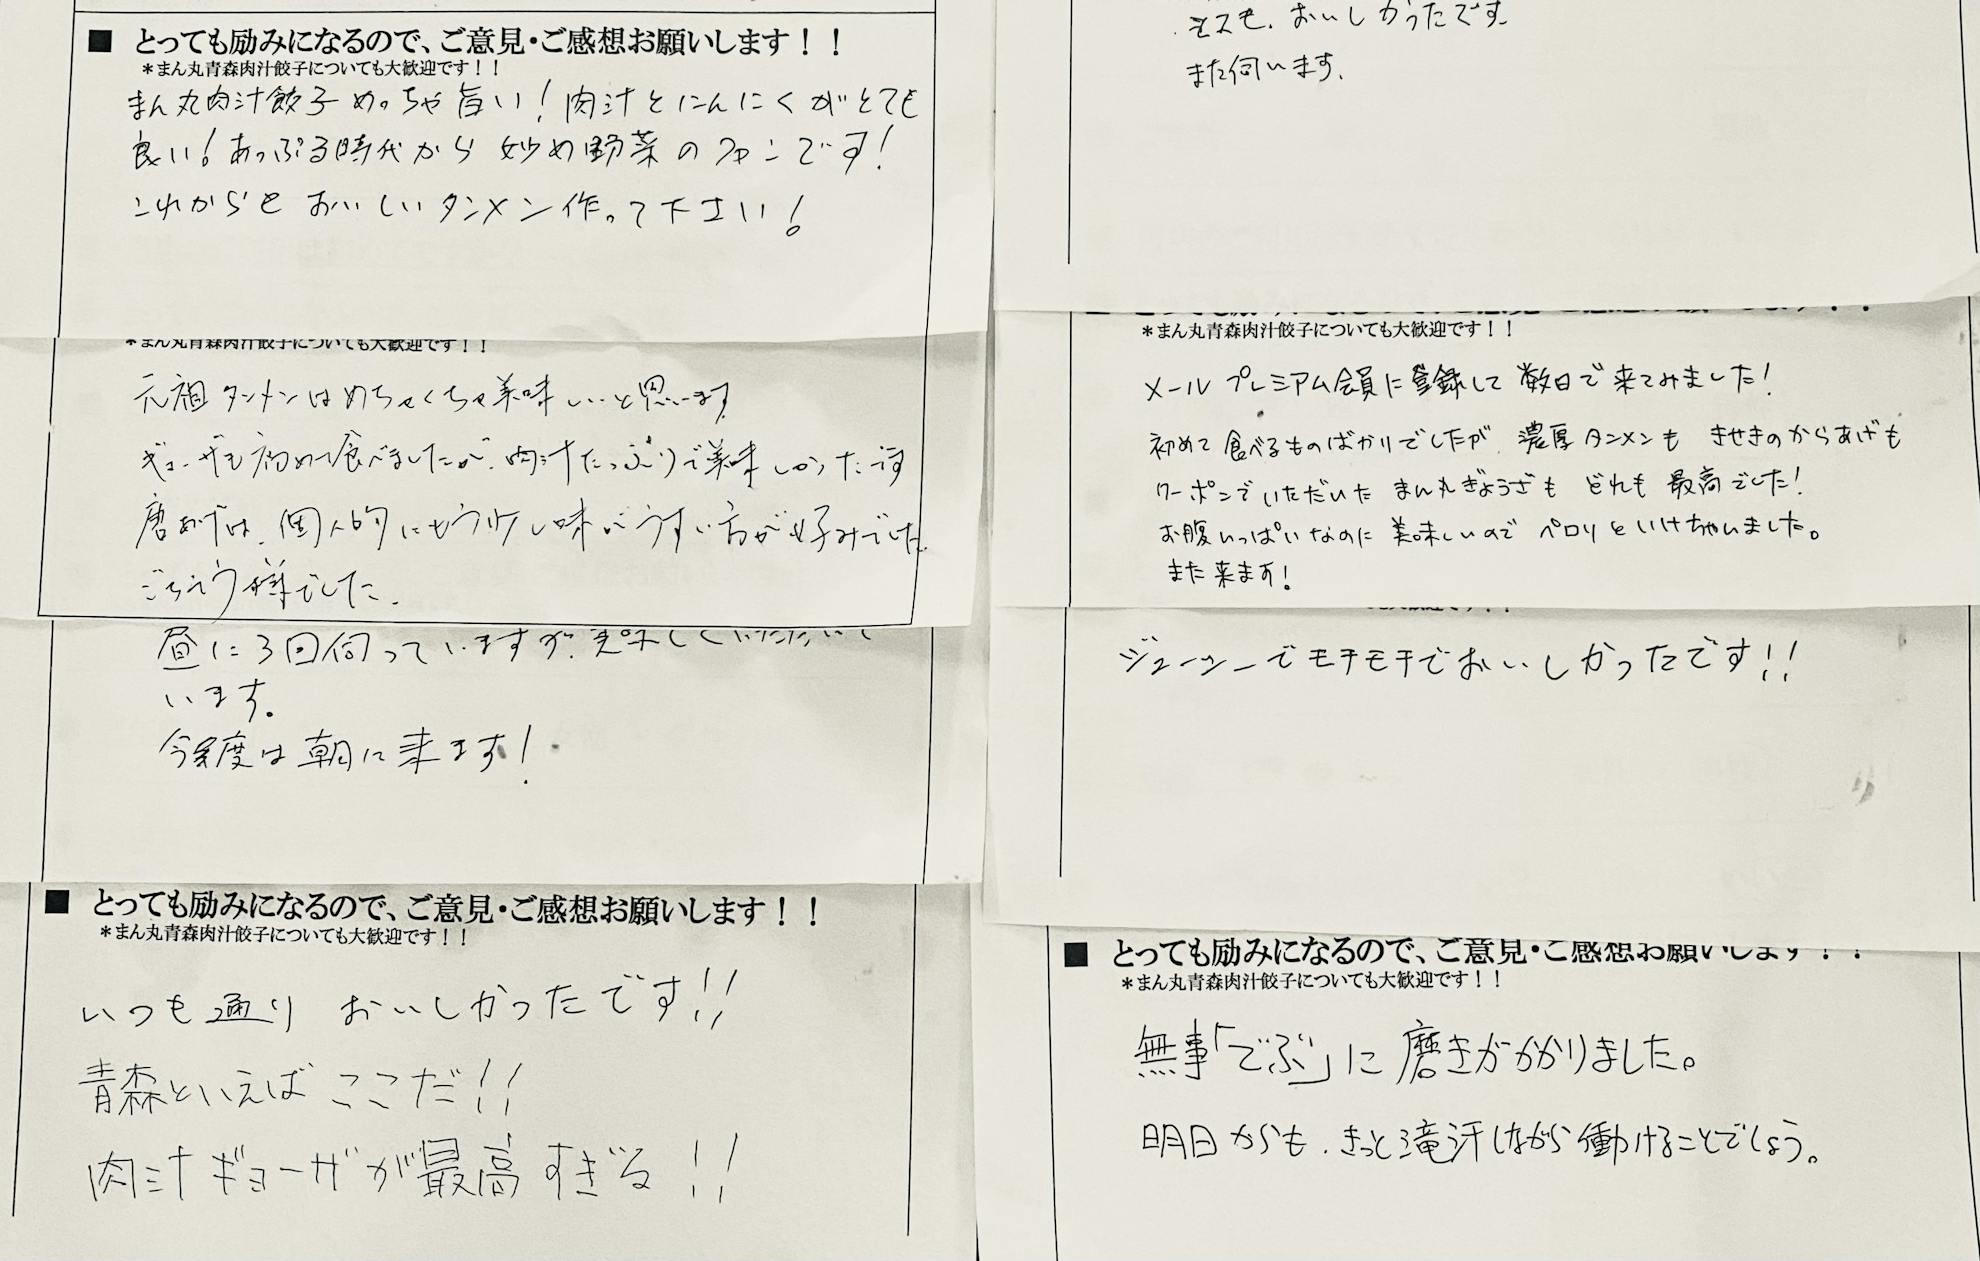 ■ とっても励みになるので、ご意見・ご感想お願いします！！
＊まん丸青森肉汁餃子についても大歓迎です！！
まん丸肉汁餃子めっちゃ旨い！肉汁とにんにくがとても
良い！あっぷる時代から炒め野菜のファンです！
これからもおいしいタンメン作って下さい！
＊まん丸青森肉汁餃子についても大歓迎です！！
元祖タンメンはめちゃくちゃ美味しいと思います
ギョーザも初めて食べましたが、肉汁たっぷりで美味しかったです
唐あげは、個人的にもう少し味がうすい方が好みでした
ごちそう様でした。
昼に3回伺っていますが、美味しくいただいて
います。
今度は朝に来ます！
■ とっても励みになるので、ご意見・ご感想お願いします！！
＊まん丸青森肉汁餃子についても大歓迎です！！
いつも通り おいしかったです!!
青森といえば ここだ!!
肉汁ギョーザが最高すぎる!!
とても、おいしかったです。
また伺います。
＊まん丸青森肉汁餃子についても大歓迎です！！
メールプレミアム会員に登録して数日で来てみました！
初めて食べるものばかりでしたが、濃厚タンメンも きせきのからあげも
クーポンでいただいた まん丸ぎょうざも どれも 最高でした！
お腹いっぱいなのに 美味しいので ペロリといけちゃいました。
また来ます！
ジューシーでモチモチでおいしかったです!!
■ とっても励みになるので、ご意見・ご感想お願いします！！
＊まん丸青森肉汁餃子についても大歓迎です！！
無事「でぶ」に磨きがかかりました。
明日からも、きっと滝汗しながら働けることでしょう。